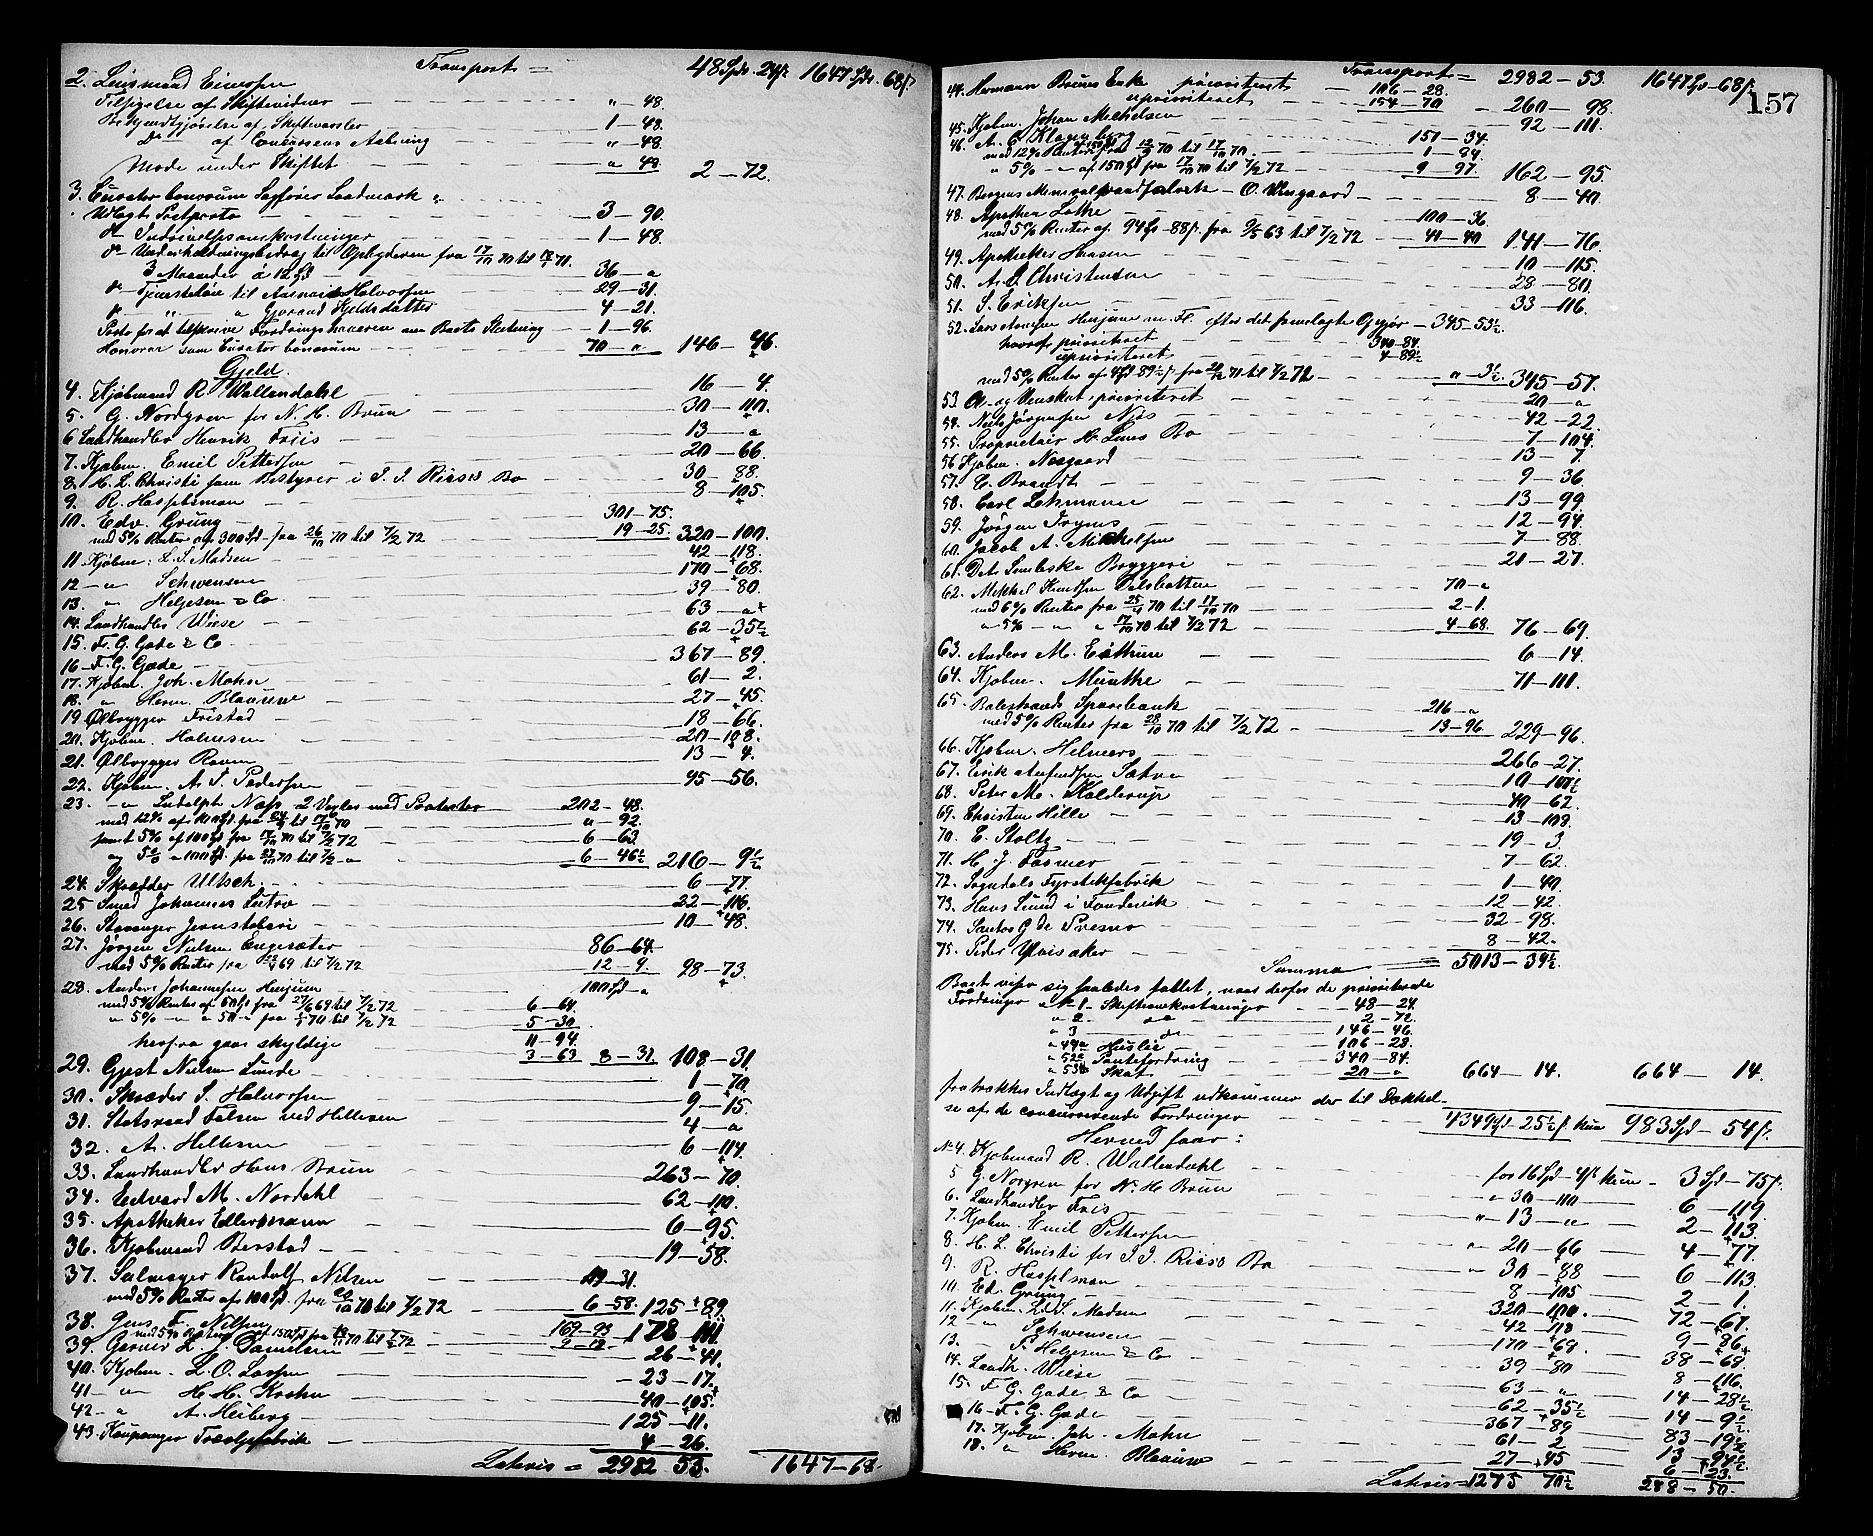 Transport = 48 Spd. 24 ß 1647 Spd. 68 ß
2. Lensmand Einersen
Tilsigelse af Skiftevidner " - 48.
Bekjendtgjørelse af Skiftevarsler 1 - 48.
Do - af Concursens Aabning " - 48.
Møde under Skiftet " 48. 2 - 72.
3. Curator bonorum Sagfører Landmark "
Udlagt Postporto 3 - 90.
do Inddrivelsesomkostninger 1 - 48.
do Underholdningsbidrag til Opbyderen fra 17/10 70 til 17/1 71.
3 Maaneder á 12 Spd 36 - "
do Tjenesteløn til Halvorsen 29 - 31.
do " " Gjeldsdatter 4 - 21.
Porto for at tilskrive Fordringshaverne om Boets Slutning 1 - 96.
Honorar som Curator bonorum 70 - " 146 - 46.
Gjeld.
4. Kjøbmand R. Wallendahl 16 - 4.
5. G. Nordgren for N. H. Bruun 30 - 110.
6 Landhandler Henrik Friis 13 - "
7. Kjøbm. Emil Pettersen 20 - 66.
8. H. L. Christi som Bestyrer i J. J. Riises Bo 30 - 88.
9. R. Hasselman 8 - 105.
10. Edv. Grung 301 - 75.
med 5% Renter af 300 Spd fra 26/10 70 til 7/2 72 19 - 25. 320 - 100.
11. Kjøbm: L. S. Madsen 42 - 118.
12 - " Schwensen 170 - 68.
13. " Heljesen & Co 39 - 80.
14. Landhandler Wiese 63 - "
15. F. G. Gade & Co 62 - 35½
16 - F. G. Gade 367 - 89.
17. Kjøbm. Joh. Mohn 61 - 2.
18. " Herm. Blaauw 27 - 45.
19 Ølbrygger Fristad 18 - 66.
20. Kjøbm. Holmsen 20 - 108.
21. Ølbrygger Roum 13 - 4.
22. Kjøbm. A. S. Pedersen 45 - 56.
23. - " Ludolph Næss 2 Vexler med Protester 202 - 48.
med 12% af 100 Spd. fra til 17/10 70 " - 92.
samt 5% af 100 Spd fra 17/10 70 til 7/2 72 6 - 63.
og 5% " 100 Spd. fra 70 til 7/2 - " 6 - 46½ 216 - 9½
24. Skrædder Ultsch. 6 - 77.
25 Smed Johannes Sætre 22 - 116.
26. Stavanger Jernstøberi 10 - 48.
27. Jørgen Nielsen Engesæter 86 - 64.
med 5% Renter fra 69 til 7/2 72 12 - 9. 98 - 73.
28. Anders Johannesen Henjum 100 Spd - "
med 5% Renter af 50 Spd fra 69 til 7/2 72 6 - 64.
" 5% - " " 50 - " fra 70 til 7/2 72 5 - 30.
11 - 94.
herfra gaar skyldige 3 - 63 8 - 31. 108 - 31.
29. Gjest Nielsen Linde 1 - 70.
30. Skræder S. Halvorsen 9 - 15.
31. Statsraad Falsen ved Hillesen 4 - "
32. A. Hillesen 6 - 114.
33. Landhandler Hans Bruun 263 - 70.
34. Edvard M. Nordahl 62 - 110.
35. Apotheker Ellermann 6 - 95.
36. Kjøbmand Berstad 19 - 58.
37. Salmager Randolf Nilsen 119 - 31.
med 5% Renter af 100 Spd. fra 70 til 7/2 72 6 - 58. 125 - 89.
38. Jens F. Nilsen 169 - 93
med 5% Renter af 150 Spd fra 70 til 7/2 72 9 - 18. 178 - 111.
39. Garver L. J. Danielsen 26 - 41.
40. Kjøbm. L. O. Larsen 23 - 17.
41 - " H. H. Krohn 40 - 105.
42 - " A. Heiberg 125 - 11.
43. Kaupanger Træoljefabrik 4 - 26.
Lateris = 2982 53. 1647 - 68.
157
Transport = 2982 - 53. 1647 Spd - 68 ß
44. Hermann Bruuns Enke prioriteret 106 - 28.
uprioriteret 154 - 70 260 - 98.
45. Kjøbm. Johan Michelsen 92 - 111.
46. A. C. Klagenberg 151 - 34.
med 12% Renter af 150 Spd fra 70 til 17/10 70 1 - 84.
" 5% - " af 150 Spd fra 17/10 70 til 7/2 72 9 - 97. 162 - 95.
47. Bergens Mineralvandfabrik - O. Wingaard 8 - 40.
48. Apother Lothe 100 - 36.
med 5% Renter af 94 Spd - 88 ß. fra 63 til 7/2 72 41 - 40 141 - 76.
49. Apotheker Hansen 10 - 115.
50. A. Christensen 28 - 80.
51. S. Eriksen 33 - 116.
52. Lars Henjum m. Fl. efter det fremlagte Opgjør - 345 - 53½.
hvoraf prioriteret 340 - 84.
uprioriteret 4 - 89½
med 5% Renter af 4 Spd 89½ ß fra 71 til 7/2 72 " - 3½. 345 - 57.
53. Skat prioriteret 20 - "
54. Niels Jørgensen Njøs 42 - 22.
55. Proprietair H. Linus Bo 7 - 104.
56 Kjøbm. Neegaard 13 - 7.
57. C. Brandt 9 - 36.
58. Carl Lehmann 13 - 99.
59. Jørgen Fryms 12 - 94.
60. Jacob A. Mikkelsen 7 - 88.
61. Det Sembske Bryggeri 21 - 27.
62. Mikkel Knudsen Dalsbotten 70 - "
med 6% Renter fra 70 til 17/10 70 2 - 1.
" 5% - " " 17/10 70 til 7/2 72 4 - 68. 76 - 69.
63. Anders M. Eithun 6 - 14.
64. Kjøbm. Munthe 71 - 111.
65. Balestrands Sparebank 216 - "
med 5% Renter fra 28/10 70 til 7/2 72 13 - 96. 229 - 96.
66. Kjøbm. Helmers 266 - 27.
67. Erik Sætre 10 - 101½
68. Peter M. Kolderup 40 - 62.
69. Christen Hille 13 - 108.
70. E. Stoltz 19 - 3.
71. H. J. Fasmer 7 - 62.
72. Sogndals Fyrstikfabrik 1 - 40.
73. Hans Lund i Fondevik 12 - 42.
74. Gde Presner 32 - 98.
75. Peder Ylvisaker 8 - 42.
Summa = 5013 - 39½
Boet viser sig saaledes fallit, naar derfor de prioriterede
Fordringer № 1 - Skifteomkostninger 48 - 24
" 2 - do 2 - 72.
" 3 do 146 - 46.
" 44a Husleie 106 - 28.
" 52a Pantefordring 340 - 84.
" 53 Skat 20 - " 664 - 14. 664 - 14.
fratrækkes Indtægt og Udgift udkommer der til Dækkel-
se af de concurrerende Fordringer 4349 Spd - 25½ ß. kun 983 Spd - 54 ß.
Herved faar:
№ 4. Kjøbmand R. Wallendahl for 16 Spd - 4 ß kun - 3 Spd - 75 ß.
5 G. Norgren for N. H. Bruun " 30 - 110 6 - 119.
6. Landhandler Friis " - 13 - " 2 - 113.
7. Kjøbm. Emil Pettersen " 20 - 66 4 - 77.
8. H. L. Christi for J. J. Riises Bo 30 - 88 6 - 113.
9. R. Hasselman 8 - 105 2 - 1.
10. Ed. Grung 320 - 100. 72 - 61.
11. Kjøbm. L. S. Madsen 42 - 118 9 - 86.
12 " Schwensen 170 - 68. 38 - 68.
13. " F. Heljesen & Co 39 - 80 8 - 116.
14. Landh. Wiese 63 - " 14 - 28½
15. F. G. Gade & Co 62 - 35½ 14 - 9½
16 - F. G. Gade 367 - 89 83 - 19½
17. Kjøbm. Joh. Mohn 61 - 2 13 - 94½
18. " Herm. Blaauw 27 - 45 6 - 23.
Lateris = 1275 70½ 288 - 50.